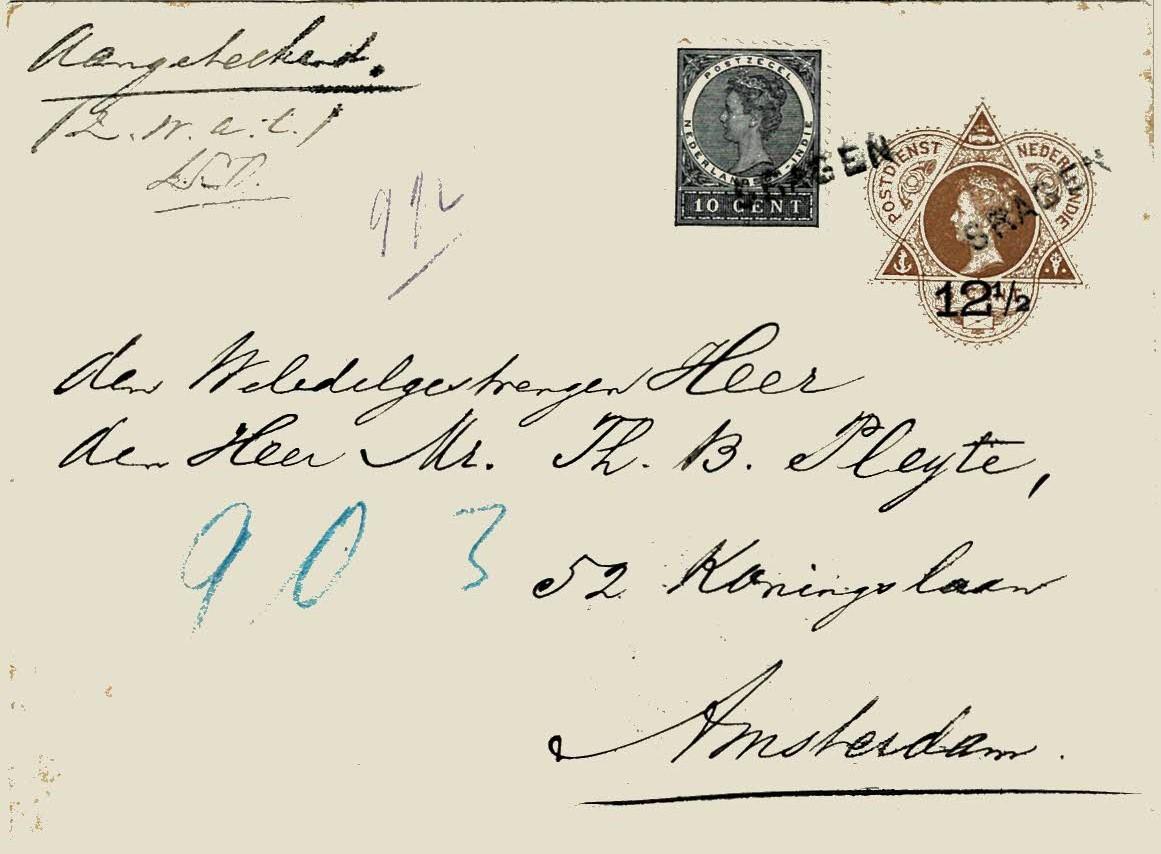 Aangeteekend.
POSTZEGEL
NEDERLANDSCH-INDIE
10 CENT
SRAGEN
POSTDIENST NEDERL. INDIE
SRAGEN
12½
den Weledelgestrengen Heer
den Heer Mr. Th. B. Pleyte,
903
52 Koningslaan
Amsterdam.